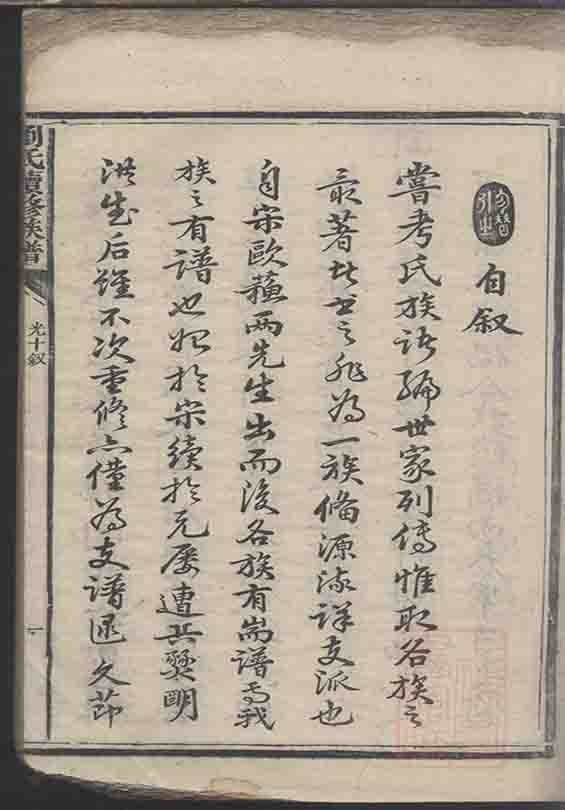 自叙
嘗考氏族諸編世家列傳惟取各族之
最著者書之非為一族備源流詳支派也
自宋歐蘇兩先生出而後各族有耑譜焉我
族之有譜也始於宋續於元屢遭兵燹明
洪武后雖不次重修亦僅為支譜逮文節
劉氏續修族譜
光十叙
一